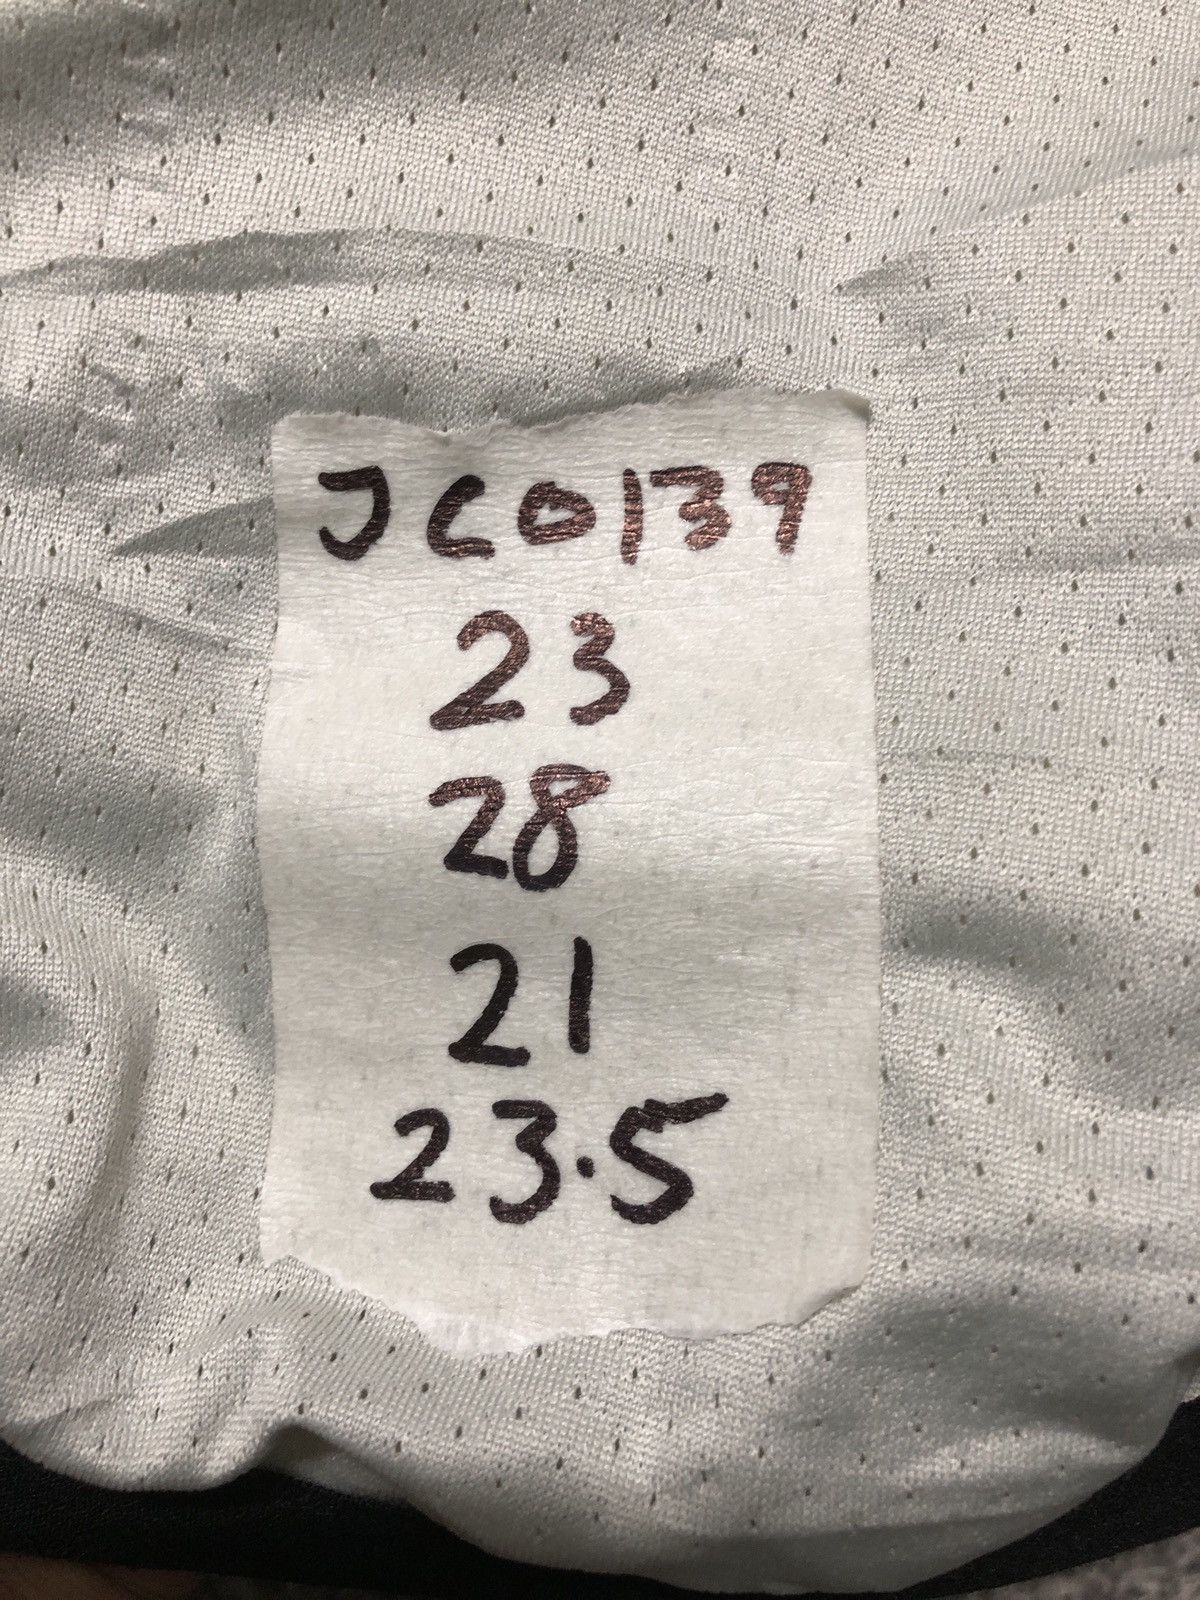 JC0139
23
28
21
23.5